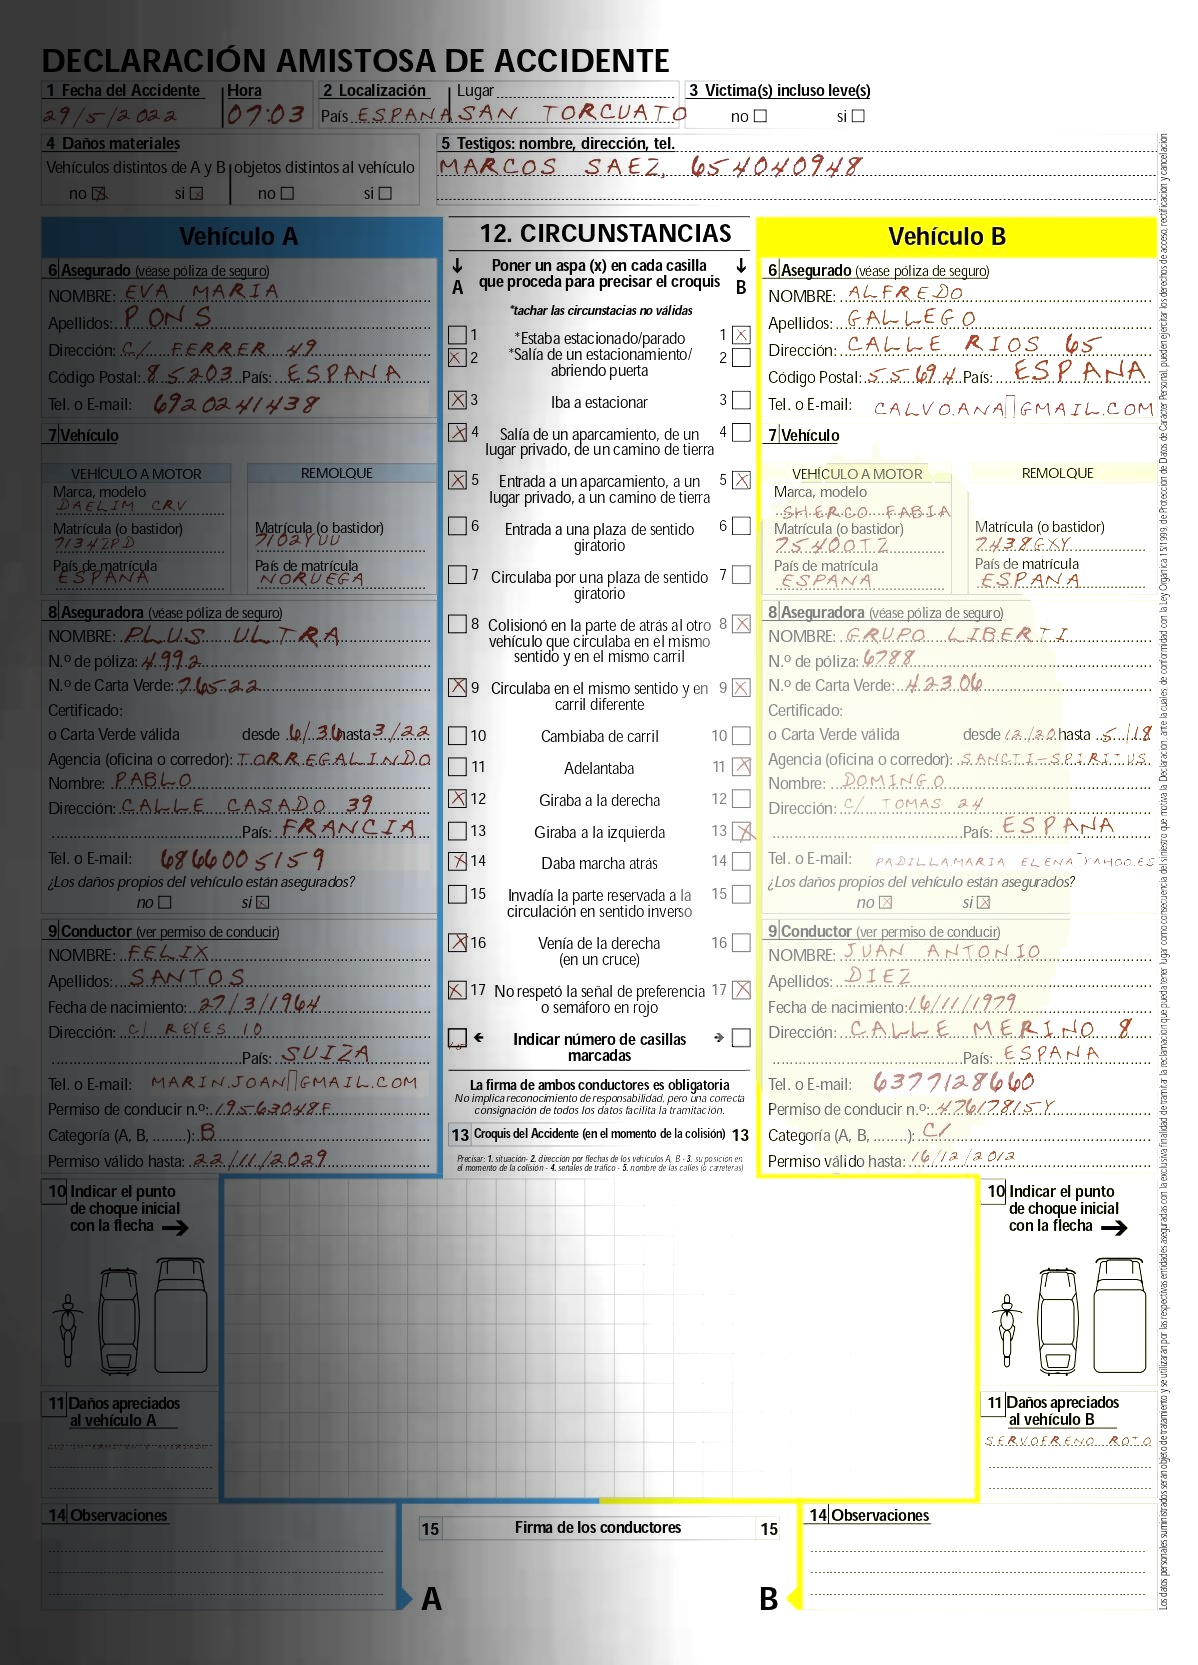 DECLARACIÓN AMISTOSA DE ACCIDENTE
1 Fecha del Accidente Hora 2 Localización Lugar 3 Victima(s) incluso leve(s)
29/5/2022 07:03 País ESPAÑA SAN TORCUATO no si
4 Daños materiales
Vehículos distintos de A y B objetos distintos al vehículo
no si no si
5 Testigos: nombre, dirección, tel.
MARCOS SAEZ, 654040948
Vehículo A
6 Asegurado (véase póliza de seguro)
NOMBRE: EVA MARIA
Apellidos: PONS
Dirección: C/ FERRER 49
Código Postal: 85203 País: ESPAÑA
Tel. o E-mail: 6920241438
7 Vehículo
VEHÍCULO A MOTOR REMOLQUE
Marca, modelo
DAELIM CRV
Matrícula (o bastidor) Matrícula (o bastidor)
7134ZPD 7102YUU
País de matrícula País de matrícula
ESPAÑA NORUEGA
8 Aseguradora (véase póliza de seguro)
NOMBRE: PLUS ULTRA
N.º de póliza: 4992
N.º de Carta Verde: 76522
Certificado:
o Carta Verde válida desde 6/36 hasta 3/22
Agencia (oficina o corredor): TORREGALINDO
Nombre: PABLO
Dirección: CALLE CASADO 39
País: FRANCIA
Tel. o E-mail: 6866005159
¿Los daños propios del vehículo están asegurados?
no si
9 Conductor (ver permiso de conducir)
NOMBRE: FELIX
Apellidos: SANTOS
Fecha de nacimiento: 27/3/1964
Dirección: C/ REYES 10
País: SUIZA
Tel. o E-mail: MARIN.JOAN GMAIL.COM
Permiso de conducir n.º: 19563048F
Categoría (A, B, ........): B
Permiso válido hasta: 22/11/2029
12. CIRCUNSTANCIAS
A Poner un aspa (x) en cada casilla que proceda para precisar el croquis B
*tachar las circunstacias no válidas
1 *Estaba estacionado/parado 1
2 *Salía de un estacionamiento/ 2
abriendo puerta
3 Iba a estacionar 3
4 Salía de un aparcamiento, de un 4
lugar privado, de un camino de tierra
5 Entrada a un aparcamiento, a un 5
lugar privado, a un camino de tierra
6 Entrada a una plaza de sentido 6
giratorio
7 Circulaba por una plaza de sentido 7
giratorio
8 Colisionó en la parte de atrás al otro 8
vehículo que circulaba en el mismo
sentido y en el mismo carril
9 Circulaba en el mismo sentido y en 9
carril diferente
10 Cambiaba de carril 10
11 Adelantaba 11
12 Giraba a la derecha 12
13 Giraba a la izquierda 13
14 Daba marcha atrás 14
15 Invadía la parte reservada a la 15
circulación en sentido inverso
16 Venía de la derecha 16
(en un cruce)
17 No respetó la señal de preferencia 17
o semáforo en rojo
Indicar número de casillas
marcadas
La firma de ambos conductores es obligatoria
No implica reconocimiento de responsabilidad, pero una correcta
consignación de todos los datos facilita la tramitación.
13 Croquis del Accidente (en el momento de la colisión) 13
Precisar: 1. situación- 2. dirección por flechas de los vehículos A, B - 3. su posición en
el momento de la colisión - 4. señales de tráfico - 5. nombre de las calles (o carreteras)
Vehículo B
6 Asegurado (véase póliza de seguro)
NOMBRE: ALFREDO
Apellidos: GALLEGO
Dirección: CALLE RIOS 65
Código Postal: 55694 País: ESPAÑA
Tel. o E-mail: CALVO.ANA GMAIL.COM
7 Vehículo
VEHÍCULO A MOTOR REMOLQUE
Marca, modelo
SHERCO FABIA
Matrícula (o bastidor) Matrícula (o bastidor)
7540OTZ 7438GXY
País de matrícula País de matrícula
ESPAÑA ESPAÑA
8 Aseguradora (véase póliza de seguro)
NOMBRE: GRUPO LIBERTI
N.º de póliza: 6788
N.º de Carta Verde: 42306
Certificado:
o Carta Verde válida desde 12/20 hasta 5/18
Agencia (oficina o corredor): SANCTI-SPIRITUS
Nombre: DOMINGO
Dirección: C/ TOMAS 24
País: ESPAÑA
Tel. o E-mail: PADILLA.MARIA ELENA YAHOO.ES
¿Los daños propios del vehículo están asegurados?
no si
9 Conductor (ver permiso de conducir)
NOMBRE: JUAN ANTONIO
Apellidos: DIEZ
Fecha de nacimiento: 16/11/1979
Dirección: CALLE MERINO 8
País: ESPAÑA
Tel. o E-mail: 6377128660
Permiso de conducir n.º: 47617815Y
Categoría (A, B, ........): C1
Permiso válido hasta: 16/12/2012
10 Indicar el punto
de choque inicial
con la flecha
11 Daños apreciados
al vehículo A
10 Indicar el punto
de choque inicial
con la flecha
11 Daños apreciados
al vehículo B
SERVOFRENO ROTO
14 Observaciones
15 Firma de los conductores 15
A B
14 Observaciones
Los datos personales suministrados seran objeto de tratamiento y se utilizaran por las respectivas entidades aseguradas con la exclusiva finalidad de tramitar la reclamación que pueda tener lugar como consecuencia del siniestro que motiva la Declaracion, ante la cuales, de conformidad con la Ley Organica 15/1999, de Proteccion de Datos de Caracter Personal, pueden ejercitar los derechos de acceso, rectificación y cancelación